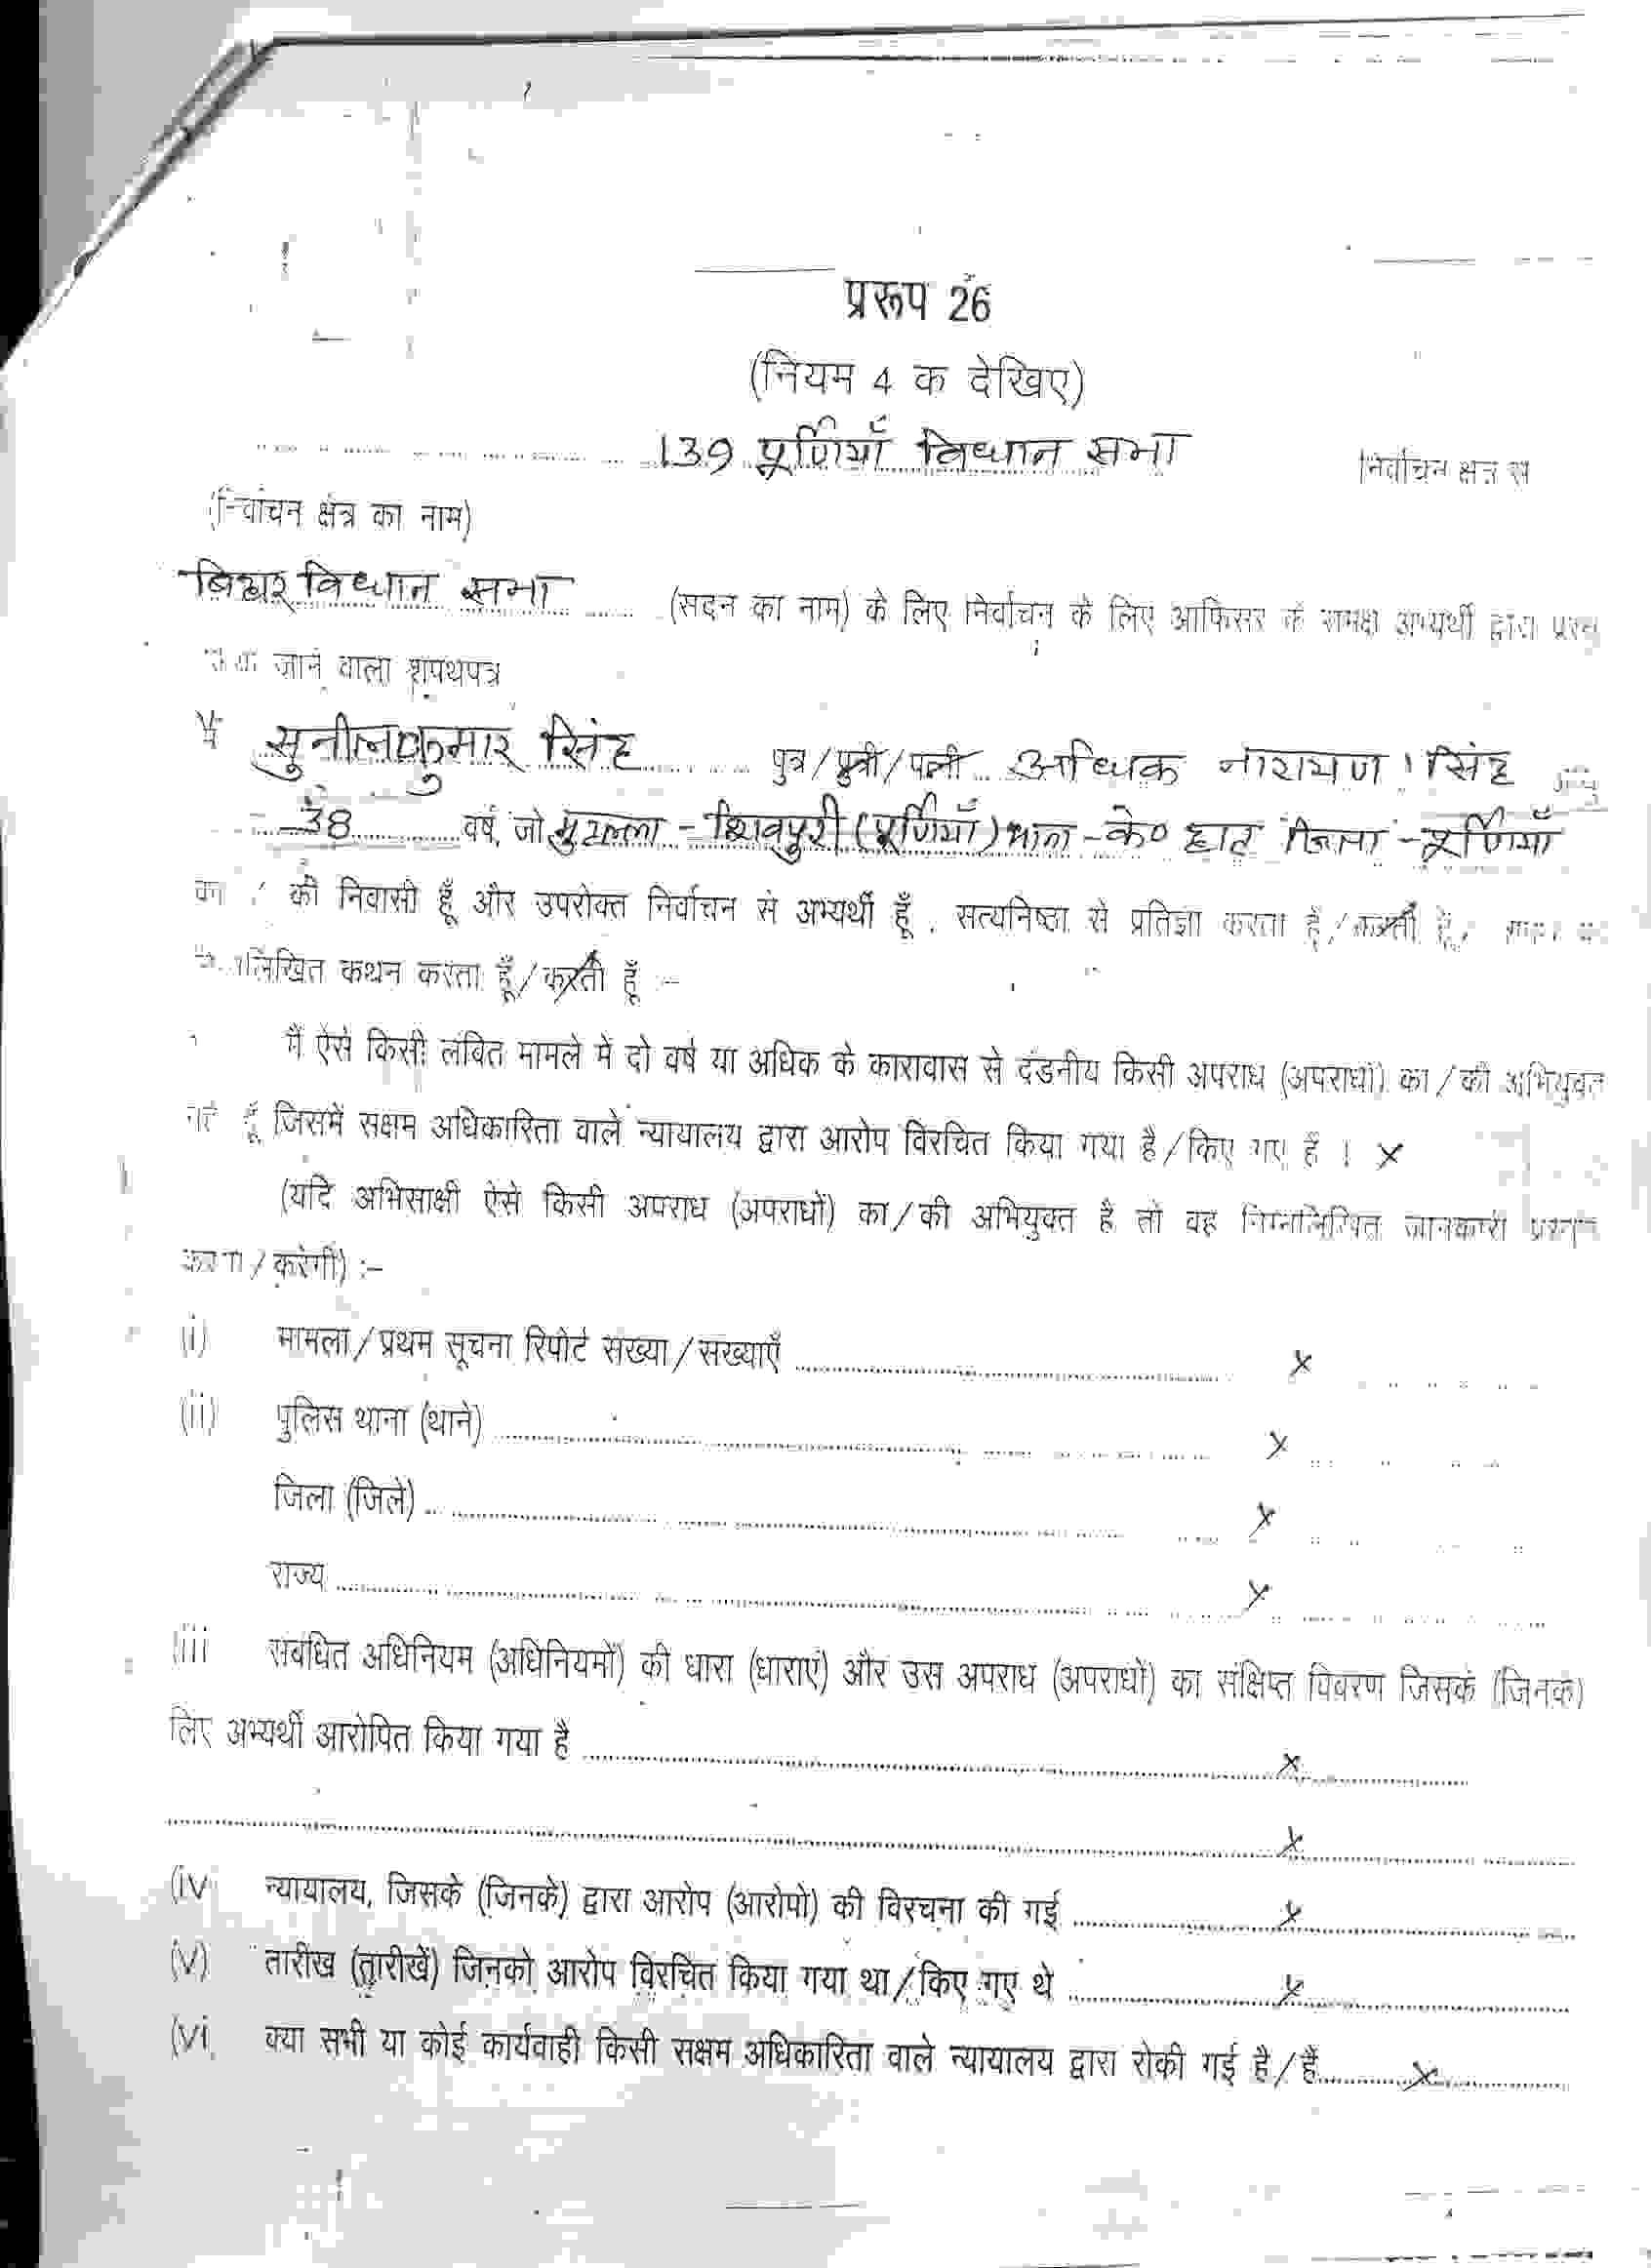 प्ररूप 26
(नियम 4 क देखिए)
139 पूर्णियाँ विधान सभा निर्वाचन क्षेत्र से
(निर्वाचन क्षेत्र का नाम)
बिहार विधान सभा (सदन का नाम) के लिए निर्वाचन के लिए आफिसर के समक्ष अभ्यर्थी द्वारा
जाने वाला शपथपत्र
मैं सुनील कुमार सिंह पुत्र/पुत्री/पत्नी अधिक नारायण सिंह आयु
38 वर्ष, जो मुहल्ला - शिवपुरी (पूर्णियाँ) थाना - के० हाट जिला - पूर्णियाँ
का / की निवासी हूँ और उपरोक्त निर्वाचन से अभ्यर्थी हूँ , सत्यनिष्ठा से प्रतिज्ञा करता हूँ/करती हूँ,
कथन करता हूँ/करती हूँ :-
मैं ऐसे किसी लंबित मामले में दो वर्ष या अधिक के कारावास से दंडनीय किसी अपराध (अपराधों) का/की अभियुक्त
नहीं हूँ जिसमें सक्षम अधिकारिता वाले न्यायालय द्वारा आरोप विरचित किया गया है/किए गए हैं । ×
(यदि अभिसाक्षी ऐसे किसी अपराध (अपराधों) का/की अभियुक्त है तो वह निम्नलिखित जानकारी प्रस्तुत
करेगा/करेगी) :-
(i) मामला/प्रथम सूचना रिपोर्ट संख्या/संख्याएँ ×
(ii) पुलिस थाना (थाने) ×
जिला (जिले) ×
राज्य ×
(iii संबंधित अधिनियम (अधिनियमों) की धारा (धाराएं) और उस अपराध (अपराधों) का संक्षिप्त विवरण जिसके (जिनके)
लिए अभ्यर्थी आरोपित किया गया है ×
×
(iv) न्यायालय, जिसके (जिनके) द्वारा आरोप (आरोपों) की विरचना की गई ×
(v) तारीख (तारीखें) जिनको आरोप विरचित किया गया था/किए गए थे ×
(vi) क्या सभी या कोई कार्यवाही किसी सक्षम अधिकारिता वाले न्यायालय द्वारा रोकी गई है/हैं ×